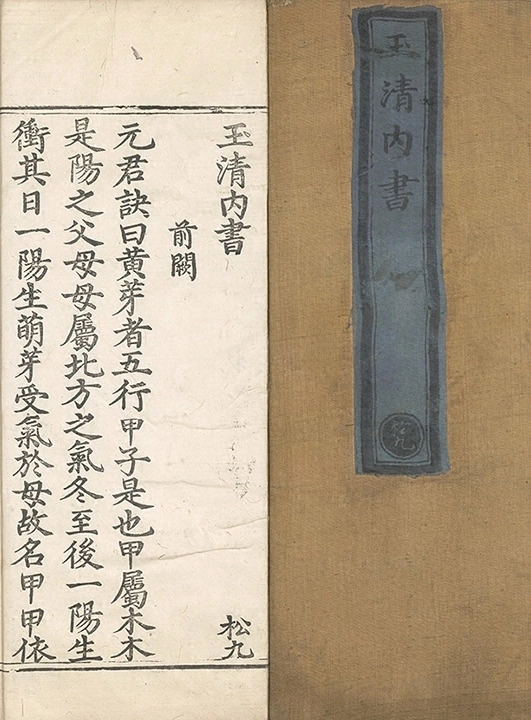 玉清内書
松九
玉清内書
松九
前闕
元君訣曰黄芽者五行甲子是也甲屬木木
是陽之父母母屬北方之氣冬至後一陽生
衝其日一陽生萌芽受氣於母故名甲甲依